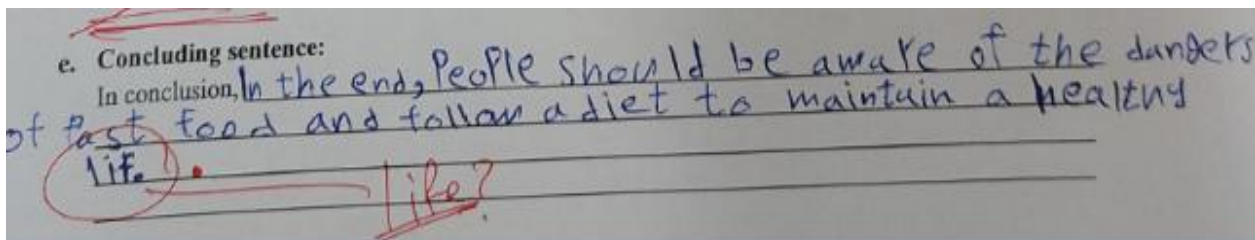 e. Concluding sentence:
In conclusion, In the end, People should be aware of the dangers
of fast food and follow a diet to maintain a healthy
life.
life?